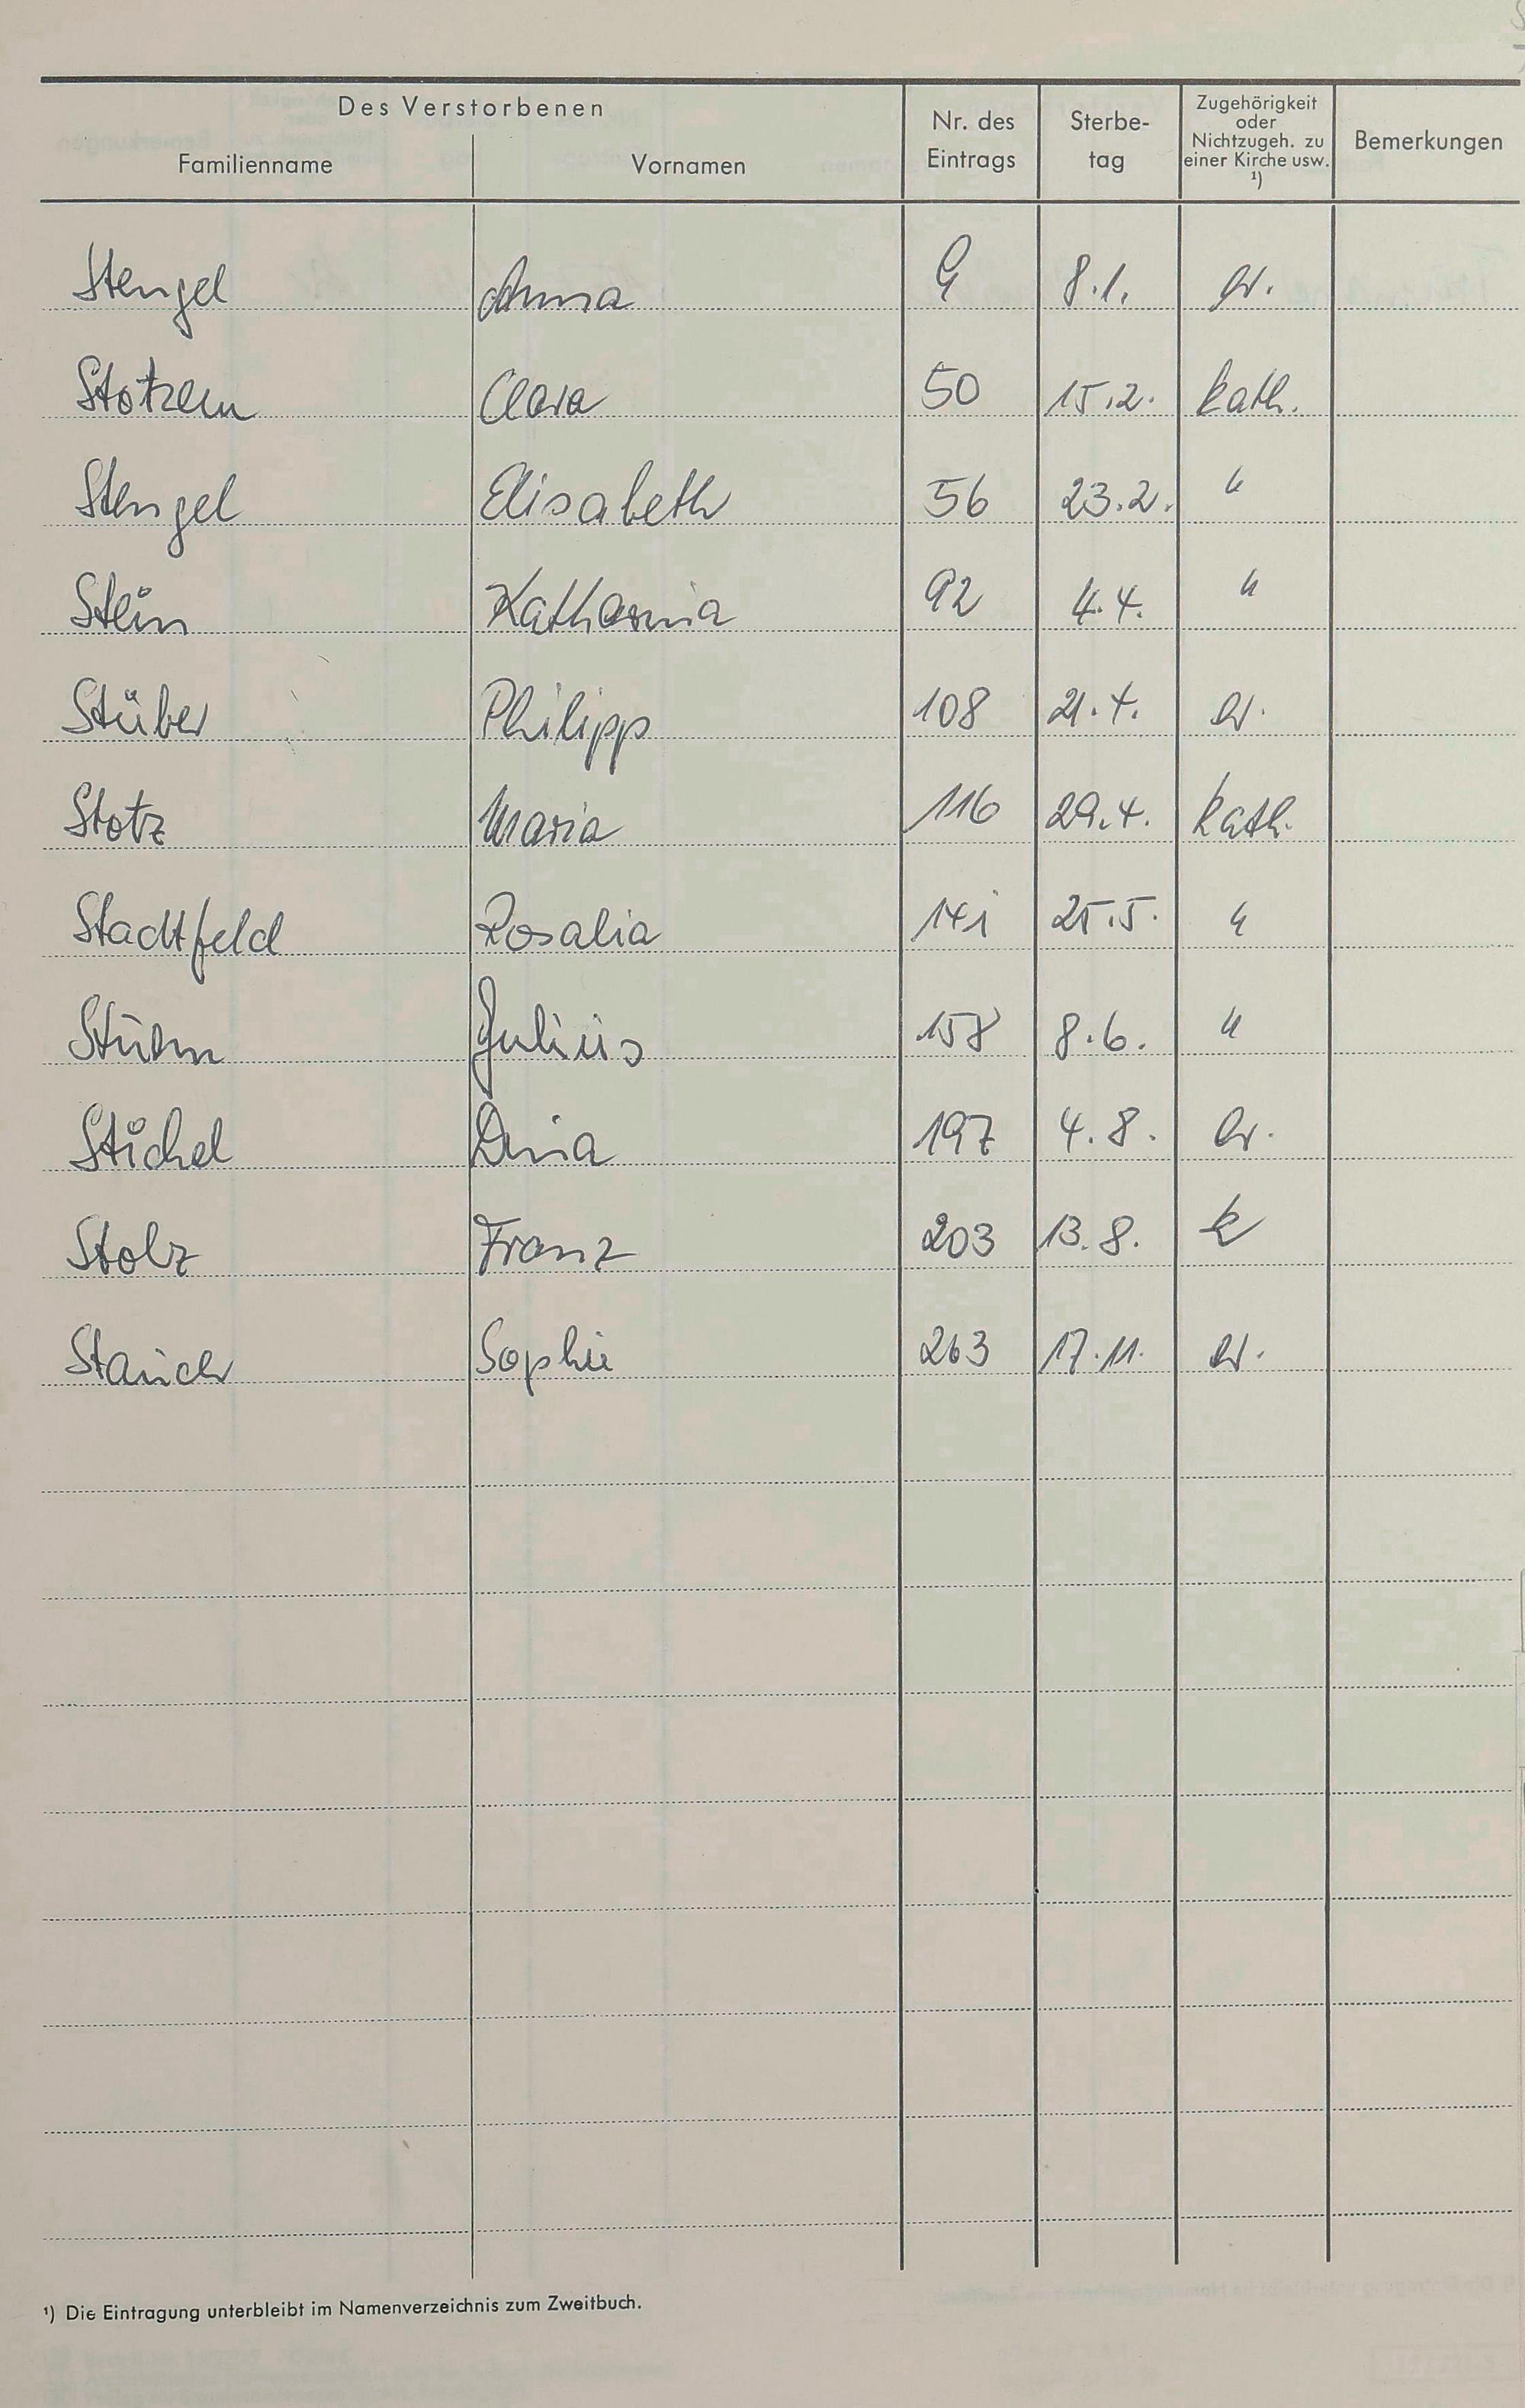 Des Verstorbenen
Familienname Vornamen Nr. des Eintrags Sterbe-tag Zugehörigkeit oder Nichtzugeh. zu einer Kirche usw. ¹) Bemerkungen
Stengel Anna 9 8.1. ev.
Stotzem Clara 50 15.2. kath.
Stengel Elisabeth 56 23.2. "
Stein Katharina 92 4.4. "
Stüber Philipp 108 21.4. ev.
Stotz Maria 116 29.4. kath.
Stadtfeld Rosalia 141 25.5. "
Sturm Julius 158 8.6. "
Stichel Dina 197 4.8. ev.
Stolz Franz 203 13.8. k
Stauch Sophie 263 17.11. ev.
¹) Die Eintragung unterbleibt im Namenverzeichnis zum Zweitbuch.